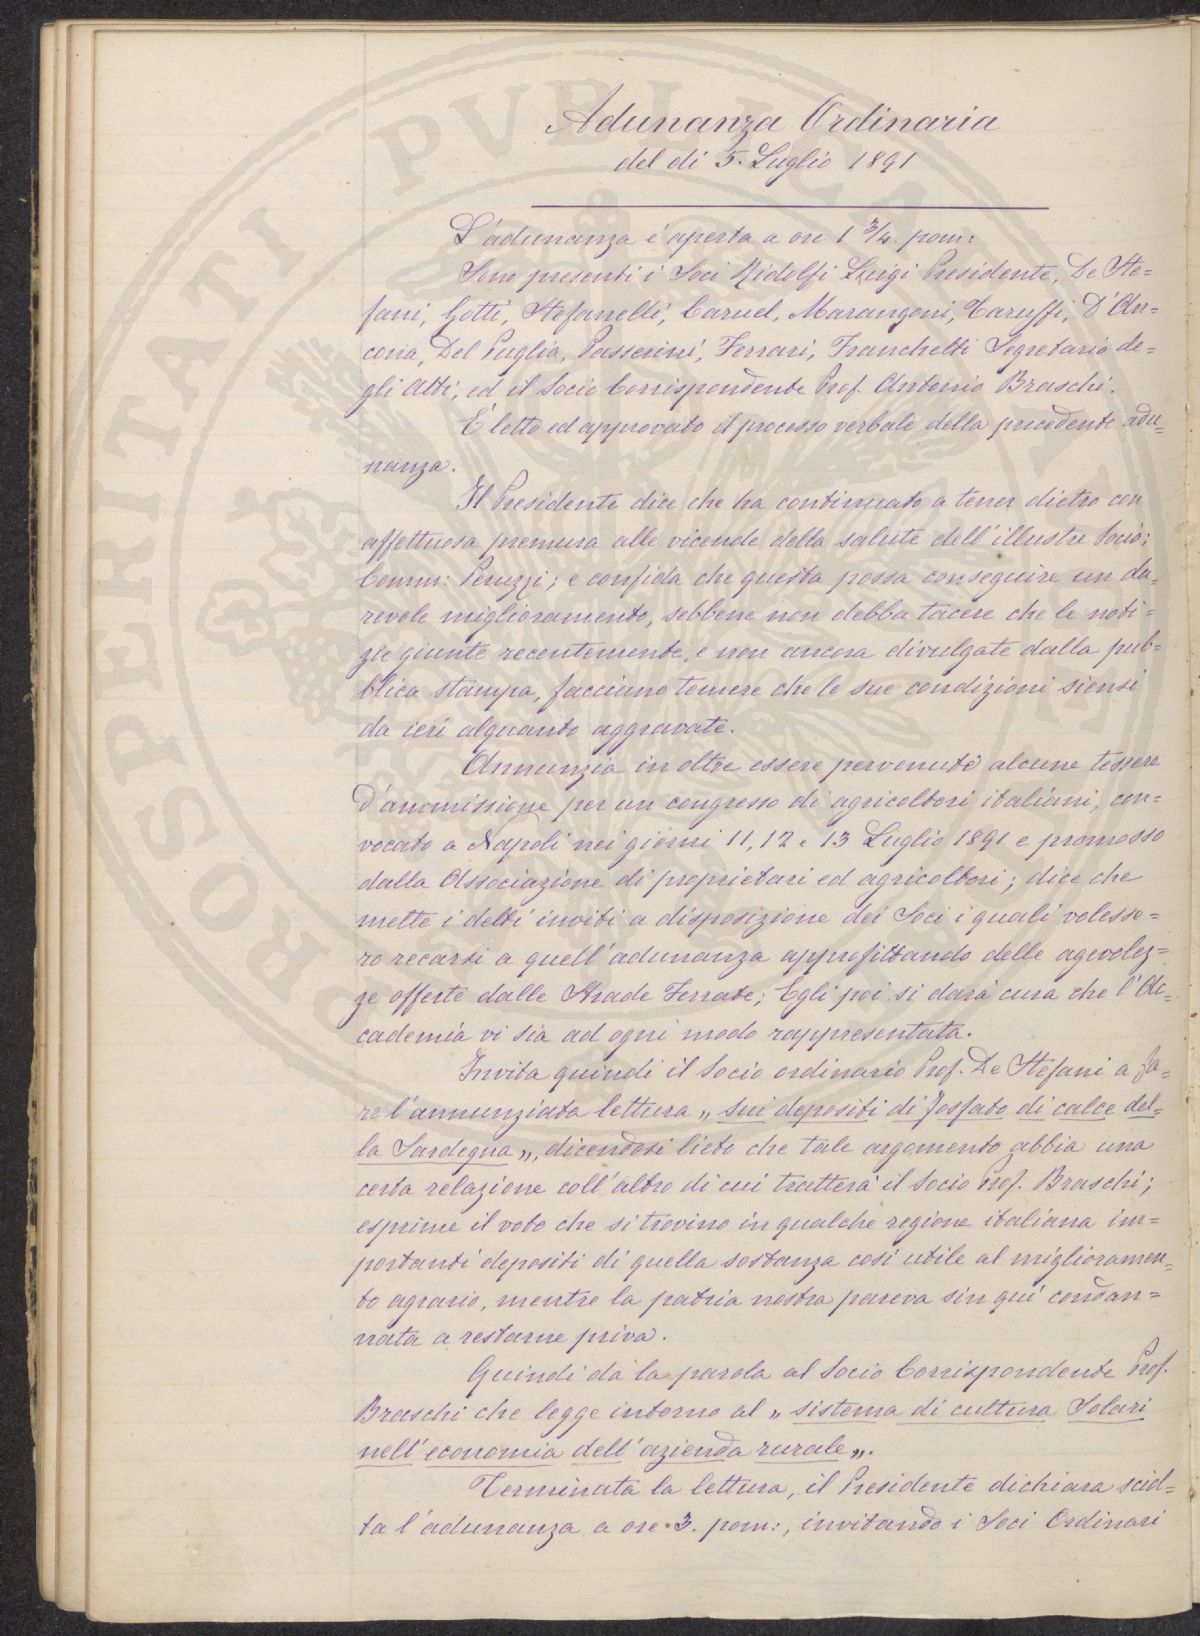 Adunanza Ordinaria
del dì 5. Luglio 1891
L'adunanza è aperta a ore 1 3/4. pom:
Sono presenti i Soci Ridolfi Luigi Presidente, De Ste=
fani, Gotti, Stefanelli, Caruel, Marangoni, Taruffi, D'An=
cona, Del Puglia, Passerini, Ferrari, Franchetti Segretario de=
gli Atti, ed il Socio Corrispondente Prof. Antonio Braschi.
È letto ed approvato il processo verbale della precedente adu=
nanza.
Il Presidente dice che ha continuato a tener dietro con
affettuosa premura alle vicende della salute dell'illustre Socio;
Comm: Peruzzi; e confida che questa possa conseguire un du=
revole miglioramento, sebbene non debba tacere che le noti=
zie giunte recentemente, e non ancora divulgate dalla pub=
blica stampa, facciano temere che le sue condizioni siensi
da ieri alquanto aggravate.
Annunzia in oltre essere pervenute alcune tessere
d'ammissione per un congresso di agricoltori italiani, con=
vocato a Napoli nei giorni 11, 12 e 13 Luglio 1891 e promosso
dalla Associazione di proprietari ed agricoltori; dice che
mette i detti inviti a disposizione dei Soci i quali volesse=
ro recarsi a quell'adunanza approfittando delle agevolez=
ze offerte dalle Strade Ferrate; Egli poi si darà cura che l'Ac=
cademia vi sia ad ogni modo rappresentata.
Invita quindi il Socio ordinario Prof. De Stefani a fa=
re l'annunziata lettura „ sui depositi di fosfato di calce del=
la Sardegna „, dicendosi lieto che tale argomento abbia una
certa relazione coll'altro di cui tratterà il Socio Prof. Braschi;
esprime il voto che si trovino in qualche regione italiana im=
portanti depositi di quella sostanza così utile al miglioramen=
to agrario, mentre la patria nostra pareva sin qui condan=
nata a restarne priva.
Quindi dà la parola al Socio Corrispondente Prof.
Braschi che legge intorno al „ sistema di cultura Solari
nell'economia dell'azienda rurale „.
Terminata la lettura, il Presidente dichiara sciol=
ta l'adunanza a ore 3. pom:, invitando i Soci Ordinari
PROSPERITATI PVBLICAE